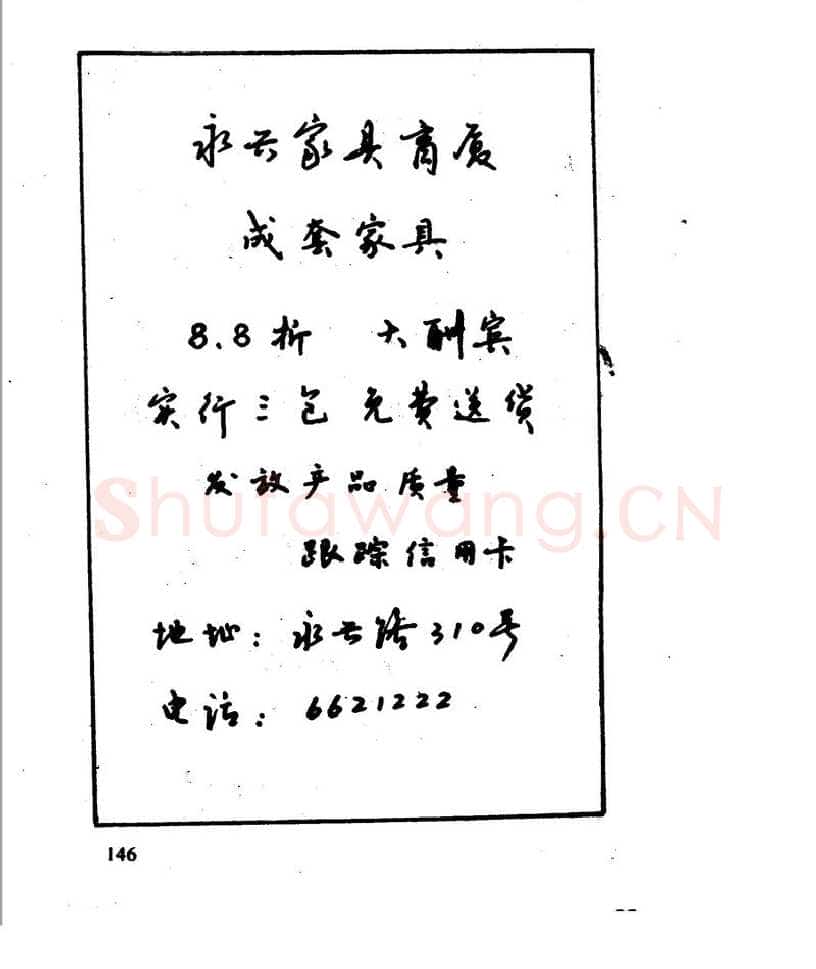 永兴家具商厦
成套家具
8.8折 大酬宾
实行三包 免费送货
发放产品质量
跟踪信用卡
地址：永兴路310号
电话：6621222
Shufawang.CN
146